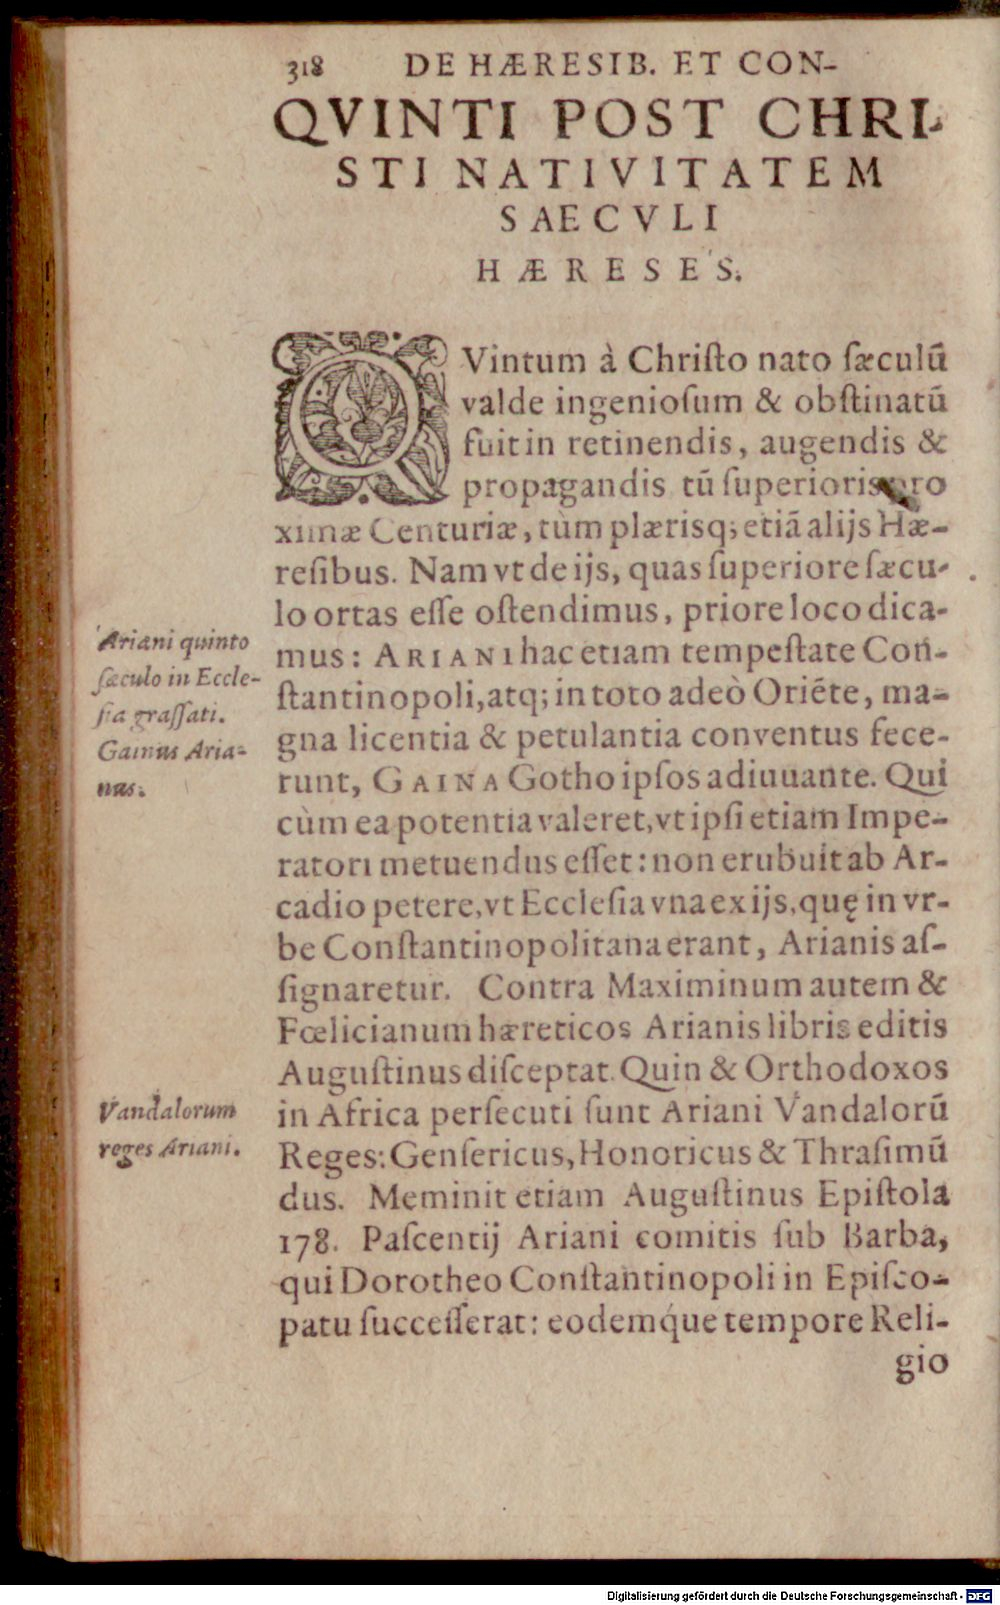 318 DE HÆRESIB. ET CON-
QVINTI POST CHRI-
STI NATIVITATEM
SAECVLI
HÆRESES.
QVintum à Chriſto nato ſæculũ
valde ingenioſum & obſtinatũ
fuit in retinendis, augendis &
propagandis tũ ſuperioris pro
ximæ Centuriæ, tùm plærisq; etiã alijs Hæ-
reſibus. Nam vt de ijs, quas ſuperiore ſæcu-
lo ortas eſſe oſtendimus, priore loco dica-
mus: ARIANI hac etiam tempeſtate Con-
ſtantinopoli, atq; in toto adeò Oriẽte, ma-
gna licentia & petulantia conventus fece-
runt, GAINA Gotho ipſos adiuuante. Qui
cùm ea potentia valeret, vt ipſi etiam Impe-
ratori metuendus eſſet: non erubuit ab Ar-
cadio petere, vt Eccleſia vna ex ijs, quę in vr-
be Conſtantinopolitana erant, Arianis aſ-
ſignaretur. Contra Maximinum autem &
Fœlicianum hæreticos Arianis libris editis
Auguſtinus diſceptat. Quin & Orthodoxos
in Africa perſecuti ſunt Ariani Vandalorũ
Reges: Genſericus, Honoricus & Thraſimũ
dus. Meminit etiam Auguſtinus Epiſtola
178. Paſcentij Ariani comitis ſub Barba,
qui Dorotheo Conſtantinopoli in Epiſco-
patu ſucceſſerat: eodemq́ue tempore Reli-
gio
Ariani quinto
ſæculo in Eccle-
ſia graſſati.
Gainus Aria-
nus.
Vandalorum
reges Ariani.
Digitalisierung gefördert durch die Deutsche Forschungsgemeinschaft - DFG